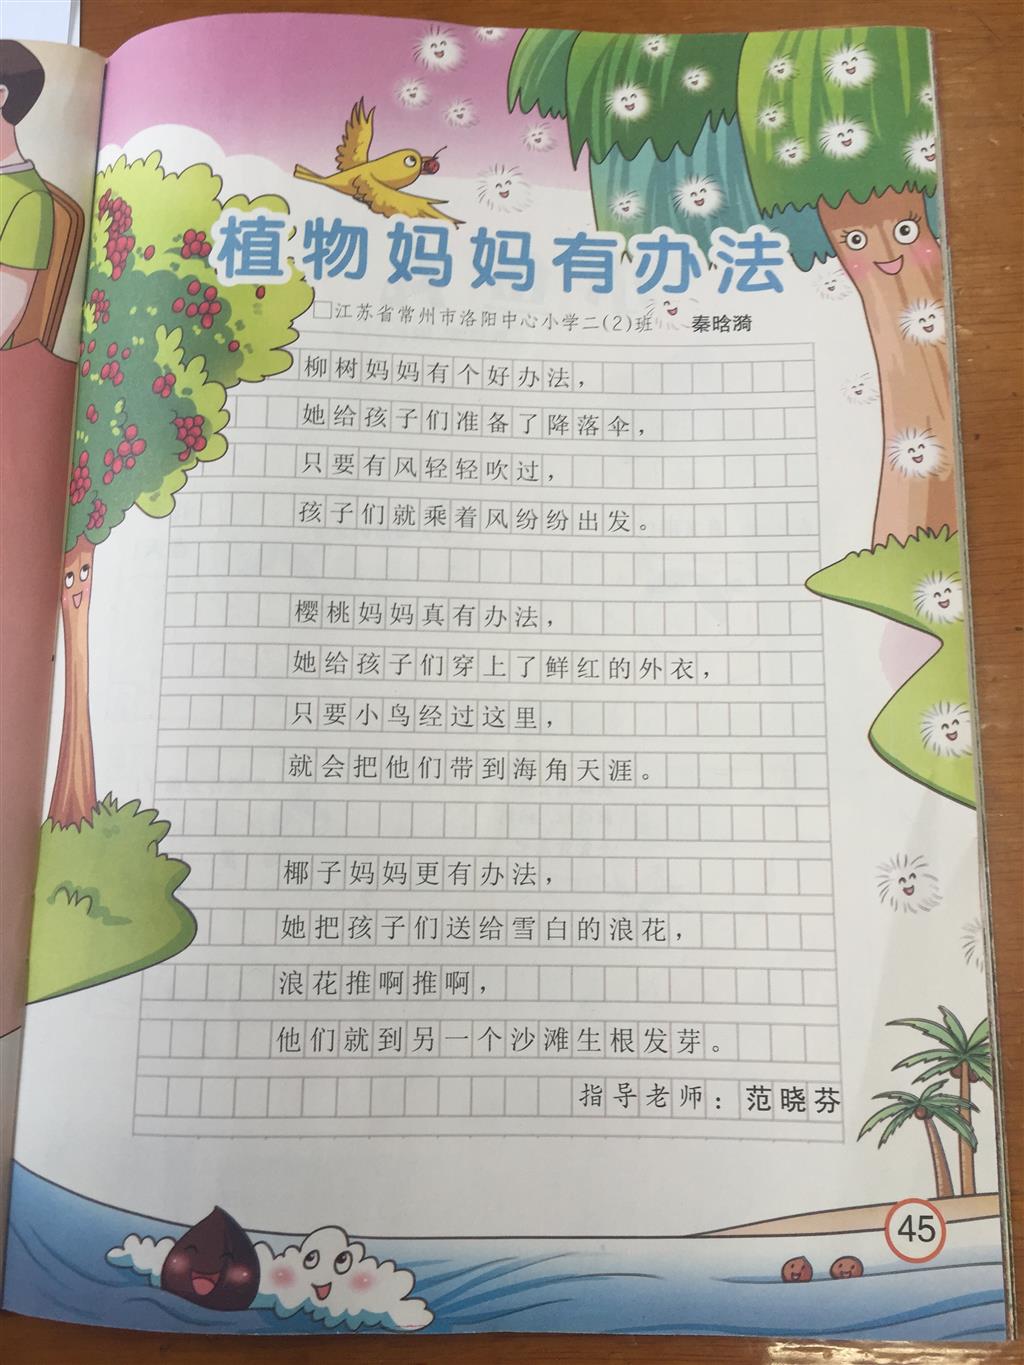 植物妈妈有办法
□江苏省常州市洛阳中心小学二(2)班 秦晗漪
柳树妈妈有个好办法，
她给孩子们准备了降落伞，
只要有风轻轻吹过，
孩子们就乘着风纷纷出发。
樱桃妈妈真有办法，
她给孩子们穿上了鲜红的外衣，
只要小鸟经过这里，
就会把他们带到海角天涯。
椰子妈妈更有办法，
她把孩子们送给雪白的浪花，
浪花推啊推啊，
他们就到另一个沙滩生根发芽。
指导老师：范晓芬
45